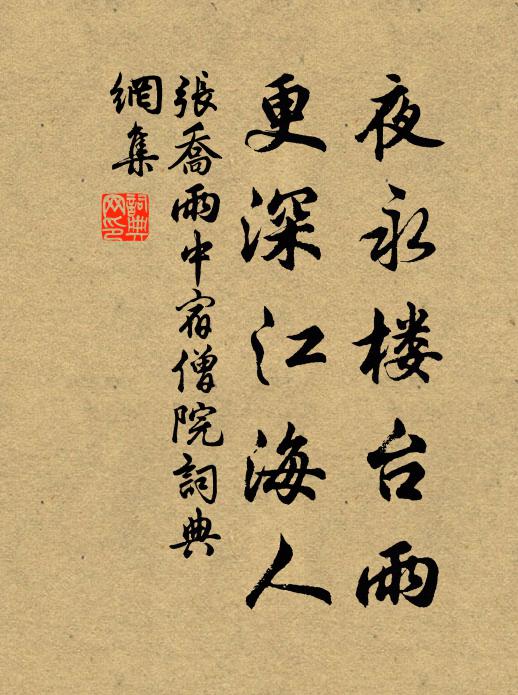 夜永楼台雨
更深江海人
張喬雨中宿僧院詞典
網集
詞典网印